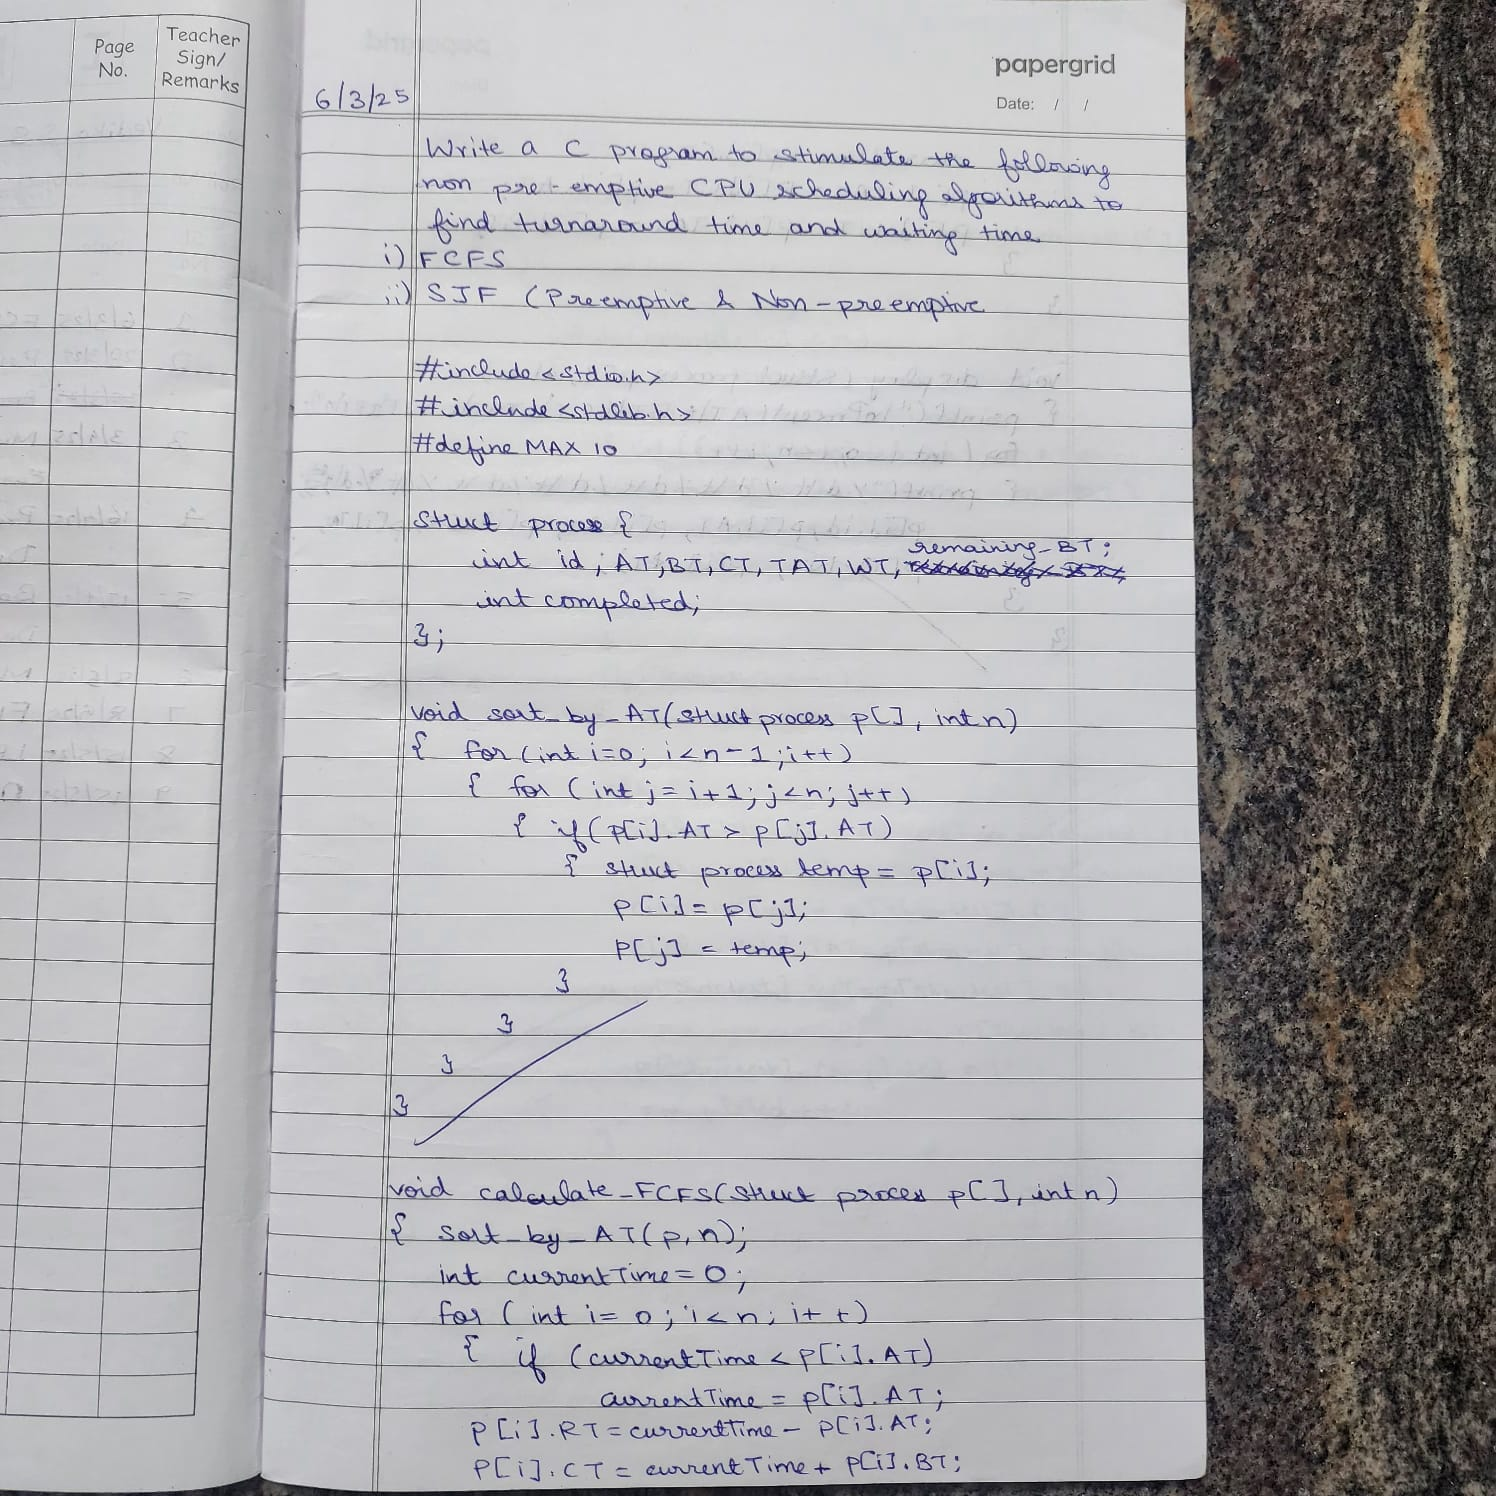 Page No.
Teacher Sign/ Remarks
papergrid
Date: / /
6/3/25
Write a C program to stimulate the following
non pre-emptive CPU scheduling algorithms to
find turnaround time and waiting time
i) FCFS
ii) SJF (Preemptive & Non-preemptive
#include <stdio.h>
#include <stdlib.h>
#define MAX 10
struct process {
remaining_BT;
int id, AT, BT, CT, TAT, WT,
int completed;
};
void sort_by_AT(struct process p[], int n)
{ for (int i=0; i<n-1; i++)
{ for (int j=i+1; j<n; j++)
{ if (p[i].AT > p[j].AT)
{ struct process temp = p[i];
p[i] = p[j];
p[j] = temp;
}
}
}
}
void calculate_FCFS(struct process p[], int n)
{ sort_by_AT(p,n);
int currentTime = 0;
for (int i=0; i<n; i++)
{ if (currentTime < p[i].AT)
currentTime = p[i].AT;
p[i].RT = currentTime - p[i].AT;
p[i].CT = currentTime + p[i].BT;